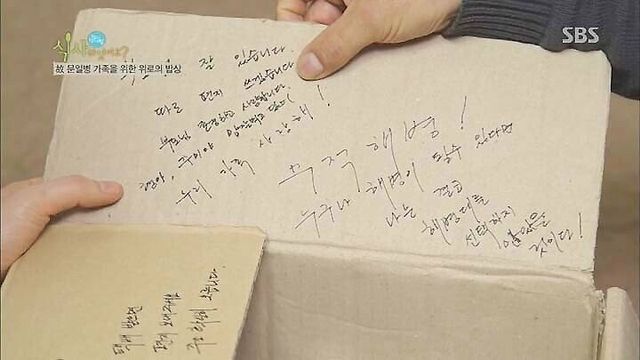 식사하셨어요?
SBS
故 문일병 가족을 위한 위로의 밥상
잘 있습니다.
따로 편지 쓰겠습니다.
부모님 존경하고 사랑합니다.
우리 가족 사랑해!
무적해병!
누구나 해병이 될수 있다면
나는 결코
해병대를
선택하지
않았을
것이다!
택배 받으면
편지